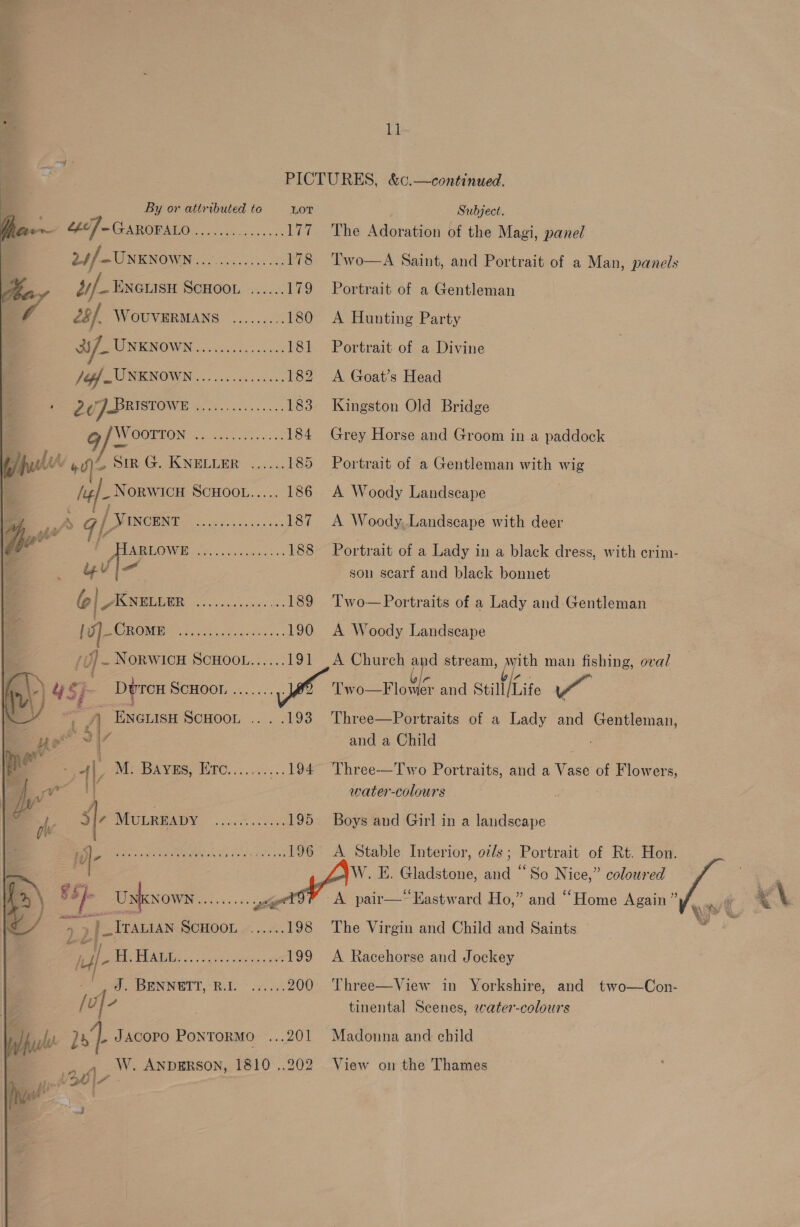 11
PICTURES, &c.—continued.
By or attributed to LOT Subject.
GAROFALO ............... 177 The Adoration of the Magi, panel
24/- UNKNOWN ............... 178 Two—A Saint, and Portrait of a Man, panels
ENGLISH SCHOOL ...... 179 Portrait of a Gentleman
28/- WOUVERMANS ......... 180 A Hunting Party
UNKNOWN ............... 181 Portrait of a Divine
UNKNOWN ............... 182 A Goat's Head
20/- BRISTOWE ............... 183 Kingston Old Bridge
9/ WOOTTON ............... 184 Grey Horse and Groom in a paddock
SIR G. KNELLER ...... 185 Portrait of a Gentleman with wig
NORWICH SCHOOL ..... 186 A Woody Landscape
9/ VINCENT ............... 187 A Woody Landscape with deer
HARLOWE ............... 188 Portrait of a Lady in a black dress, with crim-
son scarf and black bonnet
KNELLER ............... 189 Two—Portraits of a Lady and Gentleman
10/- CROME ............... 190 A Woody Landscape
10/- NORWICH SCHOOL ...... 191 A Church and stream, with man fishing, oval
45/- DUTCH SCHOOL ........ 192 Two—Flower and Still Life
ENGLISH SCHOOL .. . .193 Three—Portraits of a Lady and Gentleman,
and a Child
M. BAYES, ETC. ......... 194 Three—Two Portraits, and a Vase of Flowers,
water-colours
5/- MULREADY ............ 195 Boys and Girl in a landscape
10/- ............... 196 A Stable Interior, oils; Portrait of Rt. Hon.
W. E. Gladstone, and "So Nice," coloured
85/- UNKNOWN ......... 197 A pair—"Eastward Ho," and "Home Again"
ITALIAN SCHOOL ...... 198 The Virgin and Child and Saints
H. HALL ............... 199 A Racehorse and Jockey
J. BENNETT, R.I. ...... 200 Three—View in Yorkshire, and two—Con-
10/- tinental Scenes, water-colours
JACOPO PONTORMO ...201 Madonna and child
W. ANDERSON, 1810 ..202 View on the Thames